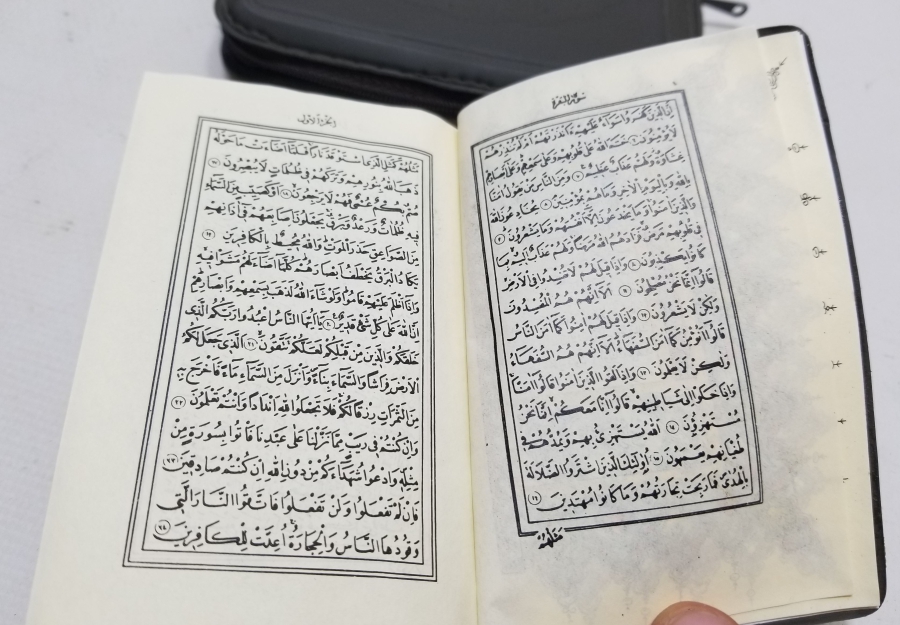 سورة البقرة
اِنَّ الَّذِينَ كَفَرُوا سَوَاءٌ عَلَيْهِمْ ءَاَنْذَرْتَهُمْ اَمْ لَمْ تُنْذِرْهُمْ
لَا يُؤْمِنُونَ ٦ خَتَمَ اللّٰهُ عَلٰى قُلُوبِهِمْ وَعَلٰى سَمْعِهِمْ وَعَلٰى اَبْصَارِهِمْ
غِشَاوَةٌ وَلَهُمْ عَذَابٌ عَظِيمٌ ٧ وَمِنَ النَّاسِ مَنْ يَقُولُ اٰمَنَّا
بِاللّٰهِ وَبِالْيَوْمِ الْاٰخِرِ وَمَا هُمْ بِمُؤْمِنِينَ ٨ يُخَادِعُونَ اللّٰهَ
وَالَّذِينَ اٰمَنُوا وَمَا يَخْدَعُونَ اِلَّا اَنْفُسَهُمْ وَمَا يَشْعُرُونَ ٩
فِي قُلُوبِهِمْ مَرَضٌ فَزَادَهُمُ اللّٰهُ مَرَضًا وَلَهُمْ عَذَابٌ اَلِيمٌ بِمَا
كَانُوا يَكْذِبُونَ ١٠ وَاِذَا قِيلَ لَهُمْ لَا تُفْسِدُوا فِي الْاَرْضِ
قَالُوا اِنَّمَا نَحْنُ مُصْلِحُونَ ١١ اَلَا اِنَّهُمْ هُمُ الْمُفْسِدُونَ
وَلٰكِنْ لَا يَشْعُرُونَ ١٢ وَاِذَا قِيلَ لَهُمْ اٰمِنُوا كَمَا اٰمَنَ النَّاسُ
قَالُوا اَنُؤْمِنُ كَمَا اٰمَنَ السُّفَهَاءُ اَلَا اِنَّهُمْ هُمُ السُّفَهَاءُ
وَلٰكِنْ لَا يَعْلَمُونَ ١٣ وَاِذَا لَقُوا الَّذِينَ اٰمَنُوا قَالُوا اٰمَنَّا
وَاِذَا خَلَوْا اِلٰى شَيَاطِينِهِمْ قَالُوا اِنَّا مَعَكُمْ اِنَّمَا نَحْنُ
مُسْتَهْزِؤُنَ ١٤ اَللّٰهُ يَسْتَهْزِئُ بِهِمْ وَيَمُدُّهُمْ فِي
طُغْيَانِهِمْ يَعْمَهُونَ ١٥ اُولٰئِكَ الَّذِينَ اشْتَرَوُا الضَّلَالَةَ
بِالْهُدٰى فَمَا رَبِحَتْ تِجَارَتُهُمْ وَمَا كَانُوا مُهْتَدِينَ ١٦
مَثَلُهُمْ
الجزء الاول
مَثَلُهُمْ كَمَثَلِ الَّذِي اسْتَوْقَدَ نَارًا فَلَمَّا اَضَاءَتْ مَا حَوْلَهُ
ذَهَبَ اللّٰهُ بِنُورِهِمْ وَتَرَكَهُمْ فِي ظُلُمَاتٍ لَا يُبْصِرُونَ ١٧
صُمٌّ بُكْمٌ عُمْيٌ فَهُمْ لَا يَرْجِعُونَ ١٨ اَوْ كَصَيِّبٍ مِنَ السَّمَاءِ
فِيهِ ظُلُمَاتٌ وَرَعْدٌ وَبَرْقٌ يَجْعَلُونَ اَصَابِعَهُمْ فِي اٰذَانِهِمْ
مِنَ الصَّوَاعِقِ حَذَرَ الْمَوْتِ وَاللّٰهُ مُحِيطٌ بِالْكَافِرِينَ ١٩
يَكَادُ الْبَرْقُ يَخْطَفُ اَبْصَارَهُمْ كُلَّمَا اَضَاءَ لَهُمْ مَشَوْا فِيهِ
وَاِذَا اَظْلَمَ عَلَيْهِمْ قَامُوا وَلَوْ شَاءَ اللّٰهُ لَذَهَبَ بِسَمْعِهِمْ وَاَبْصَارِهِمْ
اِنَّ اللّٰهَ عَلٰى كُلِّ شَيْءٍ قَدِيرٌ ٢٠ يَا اَيُّهَا النَّاسُ اعْبُدُوا رَبَّكُمُ الَّذِي
خَلَقَكُمْ وَالَّذِينَ مِنْ قَبْلِكُمْ لَعَلَّكُمْ تَتَّقُونَ ٢١ اَلَّذِي جَعَلَ لَكُمُ
الْاَرْضَ فِرَاشًا وَالسَّمَاءَ بِنَاءً وَاَنْزَلَ مِنَ السَّمَاءِ مَاءً فَاَخْرَجَ بِهِ
مِنَ الثَّمَرَاتِ رِزْقًا لَكُمْ فَلَا تَجْعَلُوا لِلّٰهِ اَنْدَادًا وَاَنْتُمْ تَعْلَمُونَ ٢٢
وَاِنْ كُنْتُمْ فِي رَيْبٍ مِمَّا نَزَّلْنَا عَلٰى عَبْدِنَا فَأْتُوا بِسُورَةٍ مِنْ
مِثْلِهِ وَادْعُوا شُهَدَاءَكُمْ مِنْ دُونِ اللّٰهِ اِنْ كُنْتُمْ صَادِقِينَ ٢٣
فَاِنْ لَمْ تَفْعَلُوا وَلَنْ تَفْعَلُوا فَاتَّقُوا النَّارَ الَّتِي
وَقُودُهَا النَّاسُ وَالْحِجَارَةُ اُعِدَّتْ لِلْكَافِرِينَ ٢٤